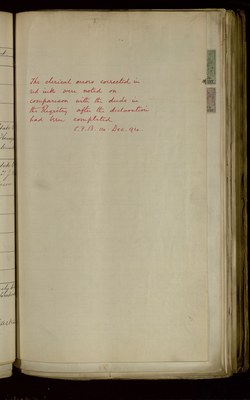 The clerical errors corrected in
red ink were noted on
comparison with the deeds in
the Registry after the Declaration
had been completed
Dec.